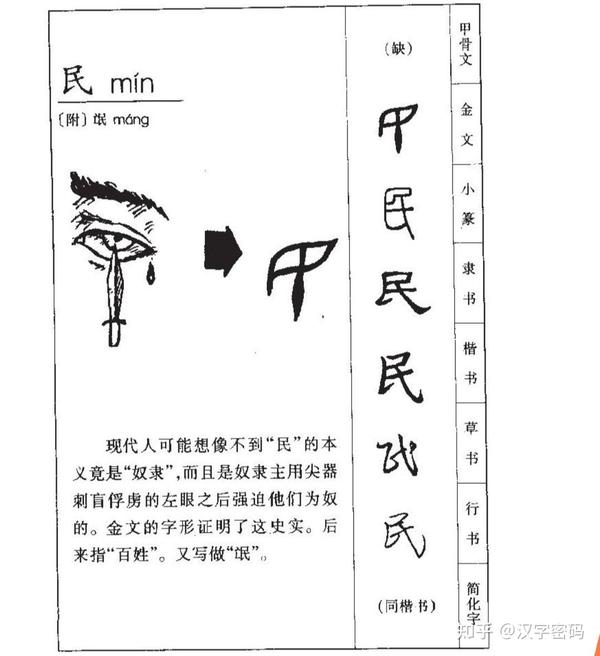 民 mín
〔附〕氓 máng
现代人可能想像不到“民”的本
义竟是“奴隶”,而且是奴隶主用尖器
刺盲俘虏的左眼之后强迫他们为奴
的。金文的字形证明了这史实。后
来指“百姓”。又写做“氓”。
(缺)
民
民
民
民
民
民
(同楷书)
甲骨文
金文
小篆
隶书
楷书
草书
行书
简化字
知乎 @汉字密码